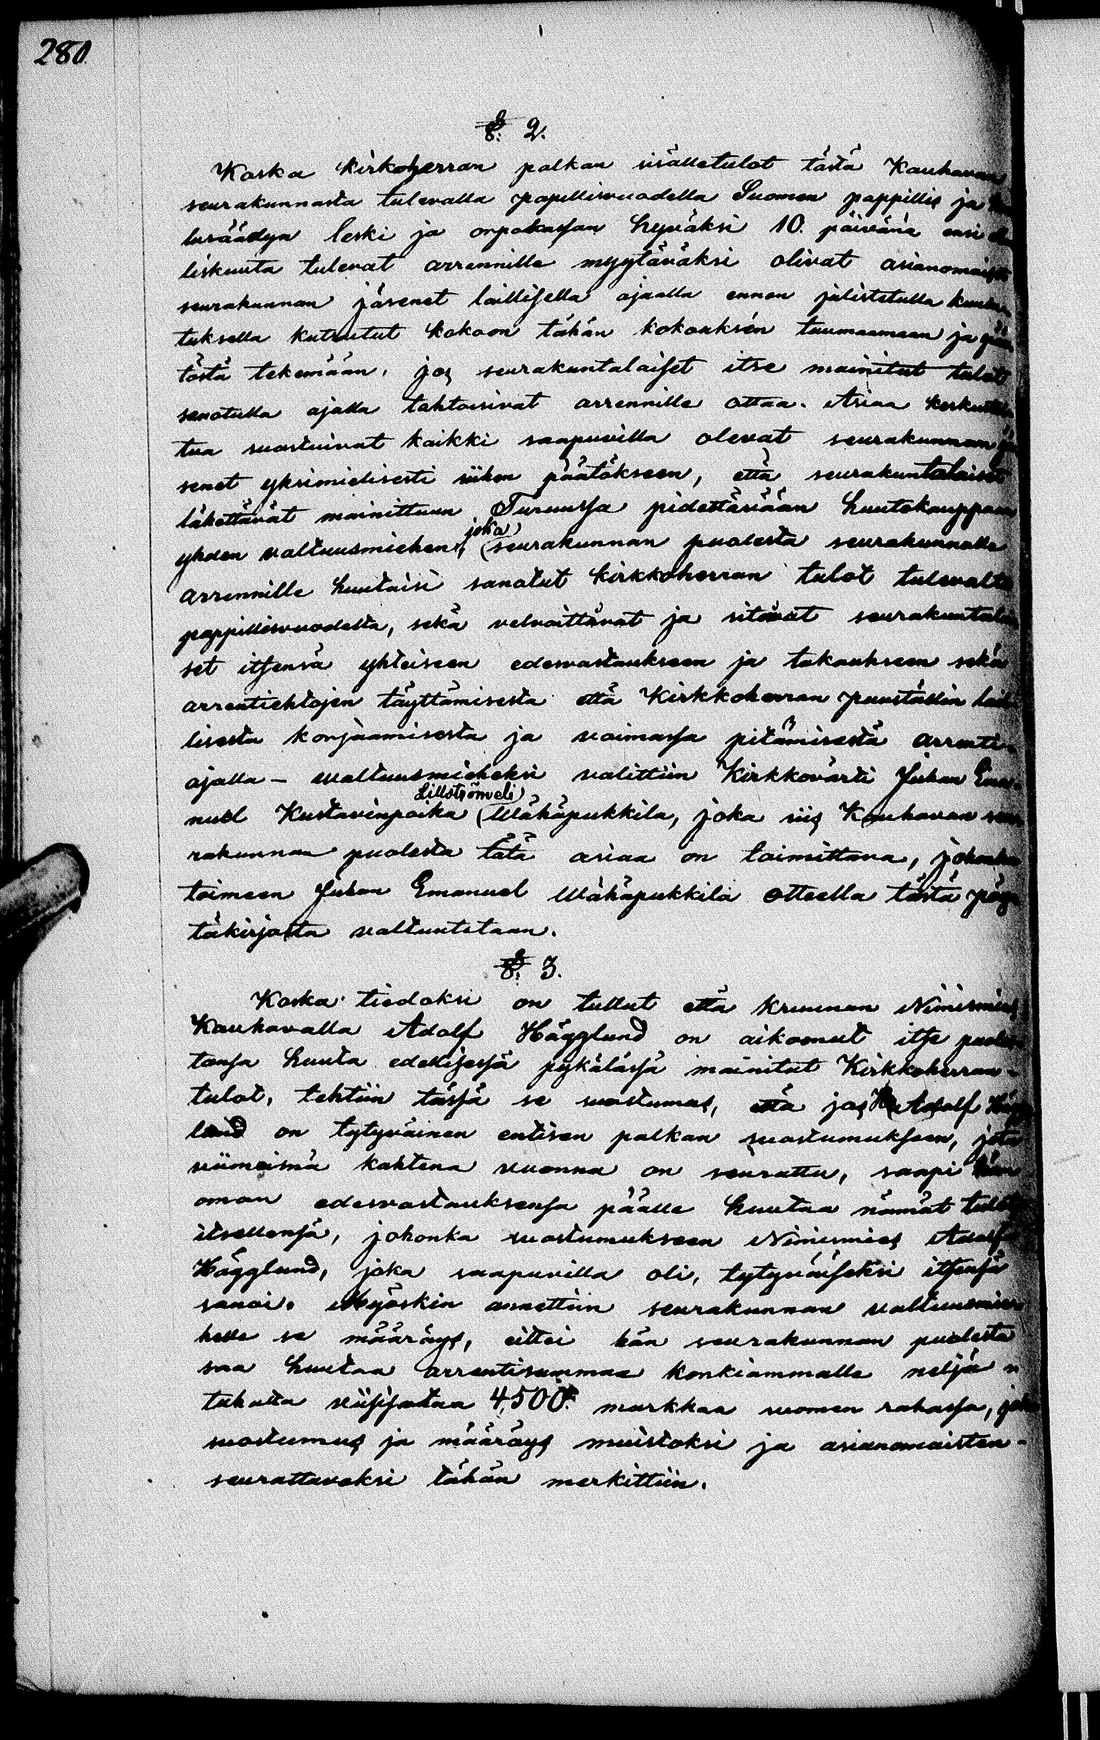 280.
§. 2.
Koska kirkoherran palkan sisälletulot tästä Kauhavan
seurakunnasta tulevalla papillisvuodella Suomen pappillis ja
lusäädyn leski ja orpokassan hyväksi 10. päivänä ensi
liskuuta tulevat arrennille myytäväksi olivat asianomaiset
seurakunnan jäsenet laillisella ajaalla ennen julistetulla kuulu
tuksella kutsutut kokoon tähän kokouksen tuumaamaan ja
töstä tekemään, jos seurakuntalaiset itse mainitut tulot
sanotulla ajalla tahtoisivat arrennille ottaa. Asiaa keskustel
tua suostuivat kaikki saapuvilla olevat seurakunnan jä
senet yksimielisesti siihen päätökseen, että seurakuntalaiset
lähettävät mainittuun Turussa pidettävään huutokauppaan
yhden valtuusmiehen, joka seurakunnan puolesta seurakunnalle
arrennille huutaisi sanotut kirkkoherran tulot tulevalta
pappillisvuodelta, sekä velvoittavat ja sitovat seurakuntalai
set itsensä yhteiseen edesvastaukseen ja takaukseen sekä
arrentiehtojen täyttämisestä että Kirkkoherran puustellin lail
lisesta korjaamisesta ja voimassa pitämisestä arrenti-
ajalla – Waltuusmieheksi valittiin Kirkkovärti Juhan Ema-
nuel Kustavinpoika Lillströmveli Wähäpukkila, joka siis Kauhavan seu
rakunnan puolesta tätä asiaa on toimittava, johonka
toimeen Juhan Emanuel Wähäpukkila otteella tästä pöy
täkirjasta valtuutetaan.
§. 3.
Koska tiedoksi on tullut että kruunun Nimismies
Kauhavalla Adolf Hägglund on aikoonut itse puoles
tansa huuta edellisessä pykälässä mainitut Kirkkoherran-
tulot, tehtiin tässä se suostumus, että jos Hr Adolf Hägg
lund on tytyväinen entisen palkan suostumukseen, jota
viimeisinä kahtena vuonna on seurattu, saapi hän
oman edesvastauksensa päälle huutaa nämät tulot
itsellensä, johonka suostumukseen Nimismies Adolf
Hägglund, joka saapuvilla oli, tytyväiseksi itsensä
sanoi. Myöskin annettiin seurakunnan valtuusmie
helle se määräys, ettei hän seurakunnan puolesta
saa huutaa arrentisummaa korkiammalle neljä
tuhatta viisisataa 4,500. markkaa suomen rahassa, joka
suostumus ja määräys muistoksi ja asianomaisten-
seurattavaksi tähän merkittiin.